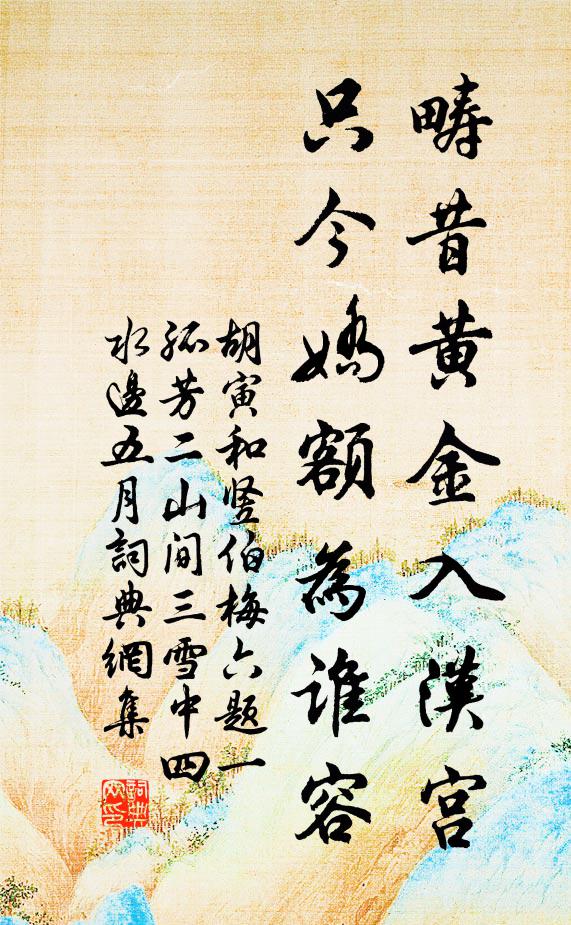 畴昔黄金入漢宫
只今嬌額為谁容
胡寅和竖伯梅六题一
孤芳二山间三雪中四
水邊五月詞典網集
詞典網印